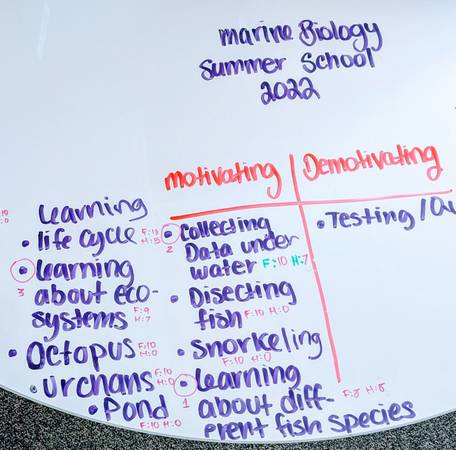 marine Biology
Summer School
2022
motivating
Demotivating
Learning
• life cycle F:10 H:5
• Learning
3 about eco-
systems F:9 H:7
• Octopus F:10 H:0
• urchans F:10 H:0
• Pond F:10 H:0
• Collecting
2 Data under
water F:10 H:7
• Disecting
fish F:10 H:0
• Snorkeling
F:10 H:0
• Learning
1 about diff-
erent fish species F:8 H:8
• Testing /